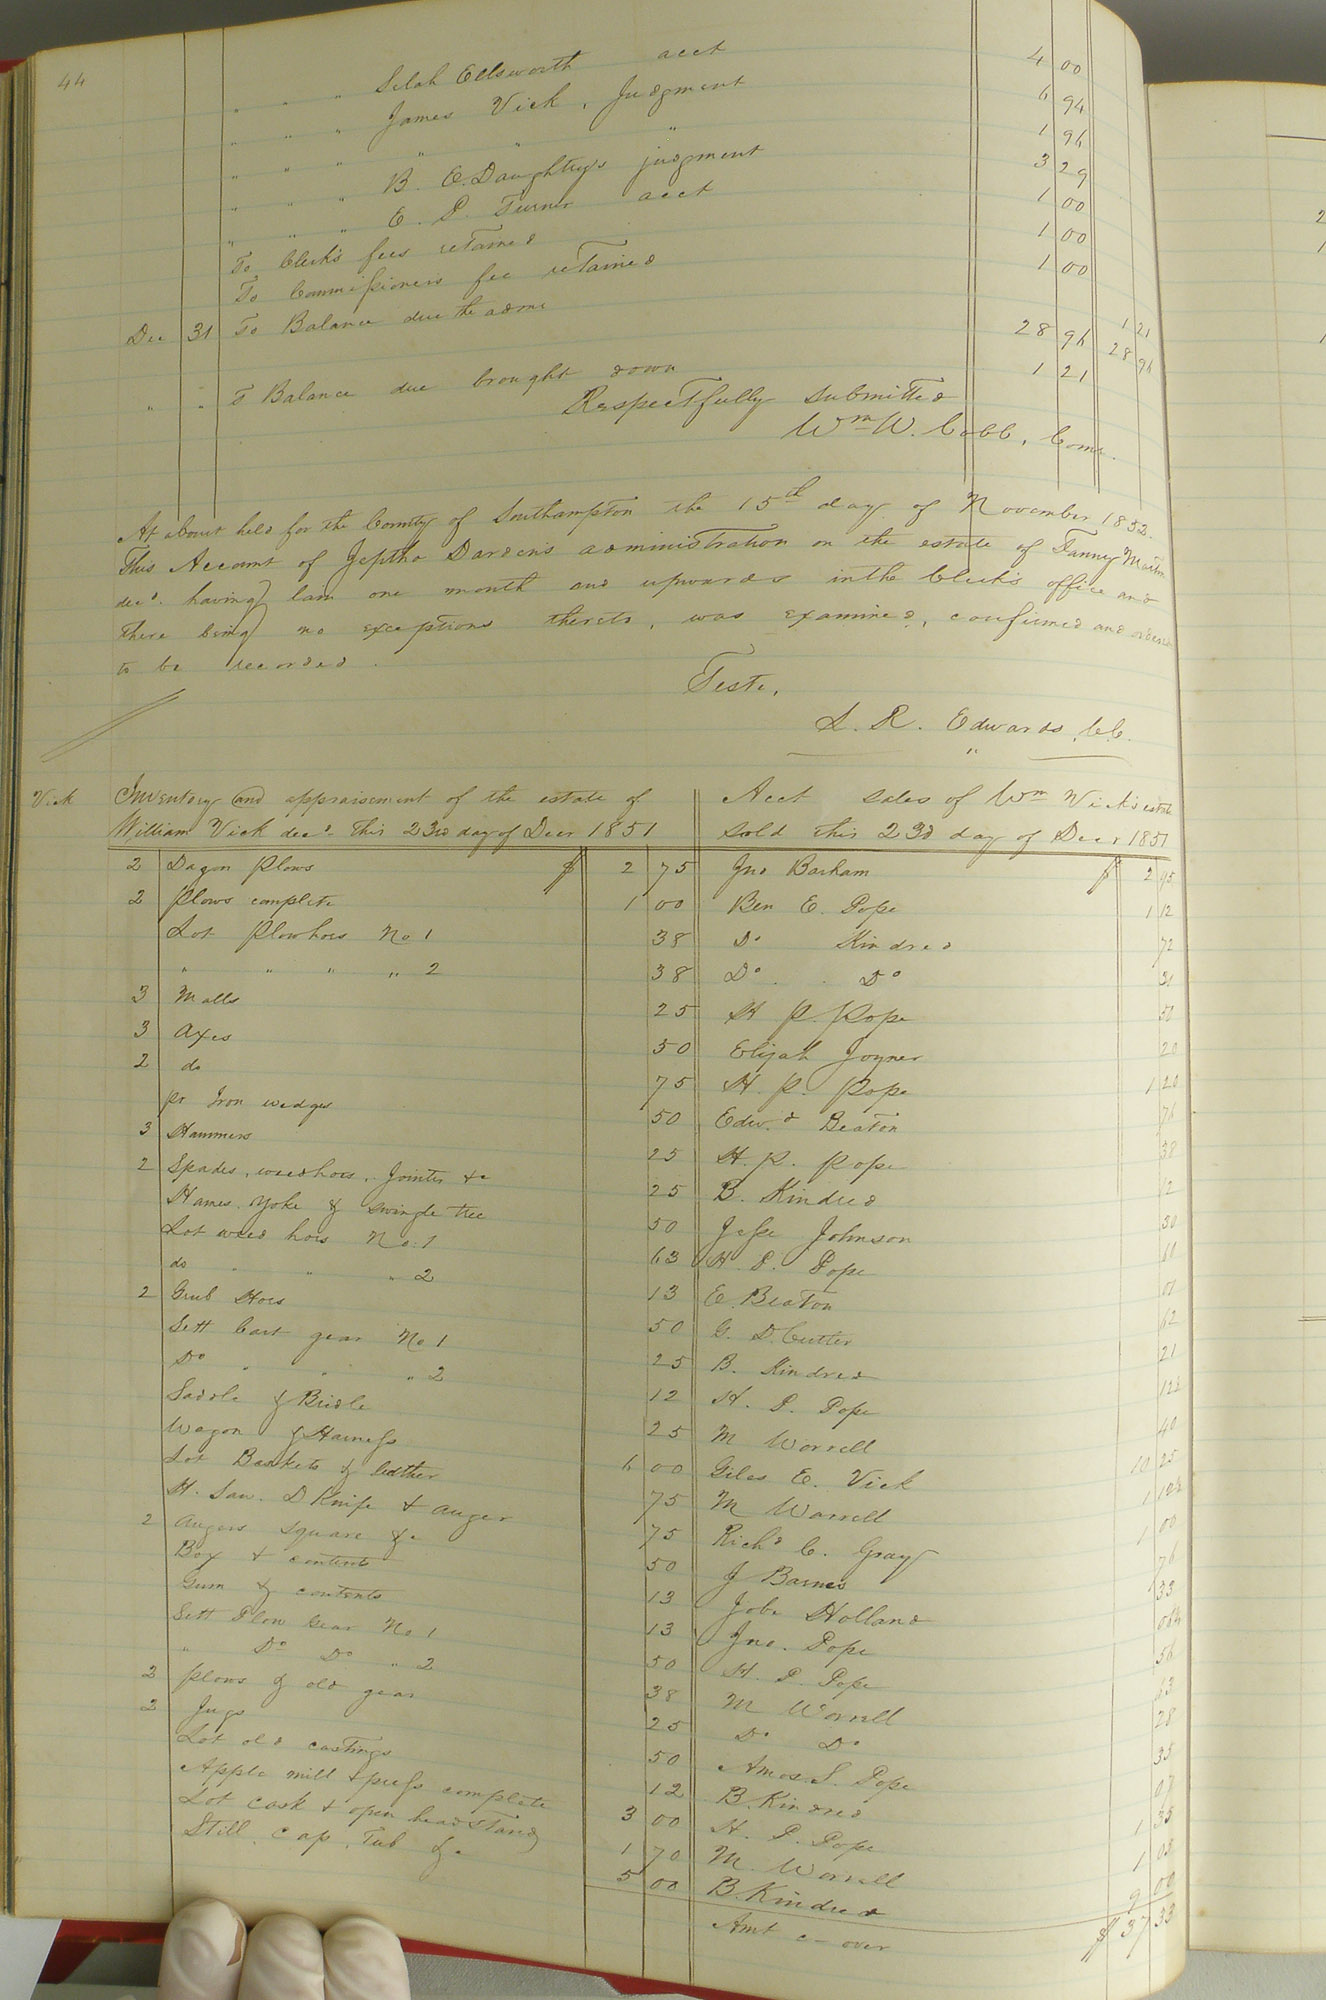 44
" " " Selah Ellsworth acct 4 00
" " " James Vick, Judgment 6 94
" " " " " " 1 96
" " " B. E. Daughtry's judgment 3 29
" " " E. P. Turner acct 1 00
To Clerk's fees retained 1 00
To Commissioners fee retained 1 00
Dec 31 To Balance due the admr 1 21
28 96 28 96
" " To Balance due brought down 1 21
Respectfully submitted
Wm W. Cobb, Comr.
At about held for the County of Southampton the 15th day of November 1852.
This Account of Jeptha Darden's administration on the estate of Fanny Martin
decd. having lain one month and upwards in the Clerk's office and
there being no exceptions thereto, was examined, confirmed and ordered
to be recorded.
Teste,
L. R. Edwards, C.C.
Vick Inventory and appraisement of the estate of
William Vick decd. this 23rd day of Decr 1851
Acct sales of Wm Vick's estate
sold this 23d day of Decr 1851
2 Dagon Plows $ 2 75 Jno Barham $ 2 95
2 Plows complete 1 00 Ben E. Pope 1 12
Lot Plowhoes No 1 38 Do Kindred 72
" " " " 2 38 Do. Do 31
3 Malls 25 H P. Pope 50
3 Axes 50 Elijah Joyner 20
2 do 75 H. P. Pope 1 20
pr Iron wedges 50 Edwd Beaton 76
3 Hammers 25 H. P. Pope 38
2 Spades, weedhoes, Jointer &c 25 B. Kindred 12
Hames, Yoke & swingle tree 50 Jesse Johnson 30
Lot weed hoes No. 1 63 H. P. Pope 61
do " " " 2 13 E. Beaton 01
2 Grub Hoes 50 G. D. Cutler 62
Sett Cart gear No 1 25 B. Kindred 21
Do " " " 2 12 H. P. Pope 12½
Saddle & Bridle 25 M Worrell 40
Wagon & Harness 6 00 Giles E. Vick 10 25
Lot Baskets & leather 75 M Worrell 1 12½
H. Saw. D Knife & auger 75 Richd C. Gray 1 00
2 Augers square &c 50 J Barnes 76
Box & contents 13 Jobe Holland 33
Gum & contents 13 Jno. Pope 06¼
Sett Plow Gear No 1 50 H. P. Pope 56
" Do Do " 2 38 M Worrell 63
2 plows & old gear 25 Do Do 28
2 Jugs 50 Amos S. Pope 35
Lot old castings 12 B. Kindred 07
Apple mill & press complete 3 00 H. P. Pope 1 35
Lot cask & open headstand 1 70 M. Worrell 1 08
Still, cap, Tub &c 5 00 B. Kindred 9 00
Amt c over $ 37 33